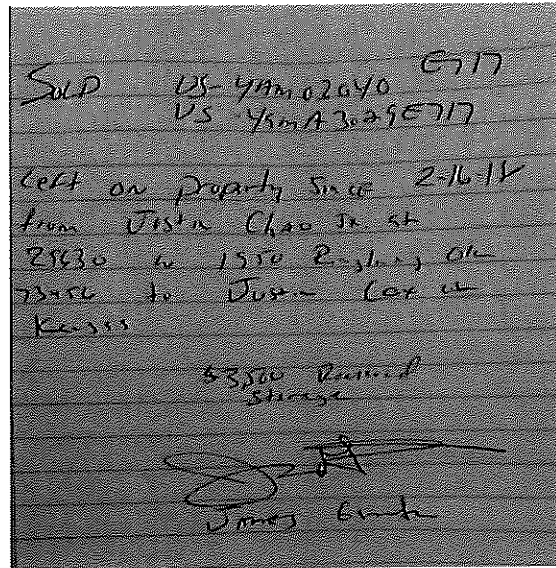 SOLD US-YAMO2040 E717
US YAMA3029E717
Left on property since 2-16-18
from Justin Chao Jr at
29630 W 1550 Ringling OK
73456 to Justin Cox at
Kansas
$3,500 Received
Storage
James